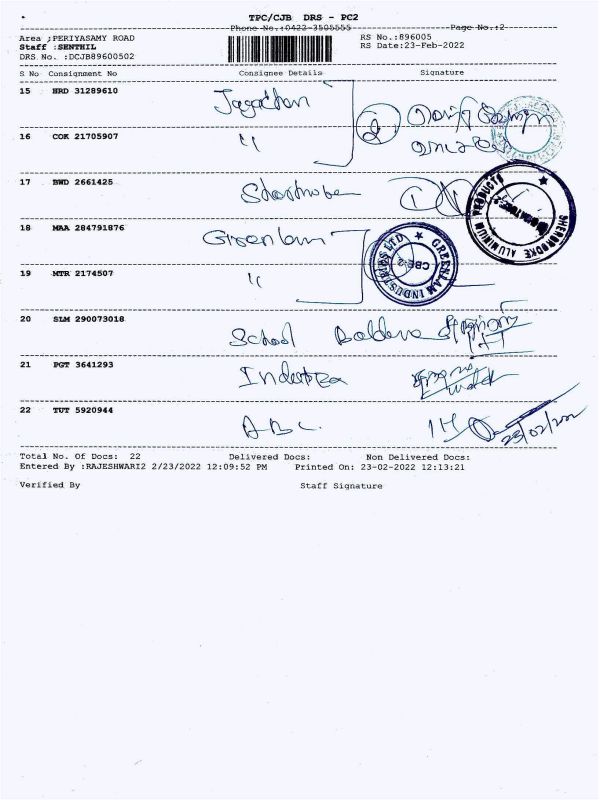 TPC/CJB DRS - PC2
Phone No.:0422-3505555 Page No.:2
Area :PERIYASAMY ROAD RS No.:896005
Staff :SENTHIL RS Date:23-Feb-2022
DRS No. :DCJB89600502
S No Consignment No Consignee Details Signature
15 HRD 31289610
16 COK 21705907 "
17 BWD 2661425
18 MAA 284791876 Greenlam
GREENLAM INDUSTRIES LTD
CBE-2
SHERBROOKE ALUMINIUM PRODUCTS
19 MTR 2174507 "
20 SLM 290073018 School
21 PGT 3641293
22 TUT 5920944 ABC. 23/02/202
Total No. Of Docs: 22 Delivered Docs: Non Delivered Docs:
Entered By :RAJESHWARI2 2/23/2022 12:09:52 PM Printed On: 23-02-2022 12:13:21
Verified By Staff Signature